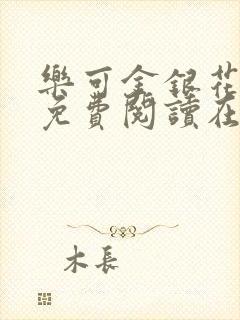 樂可金銀花
免費閱讀在
木長